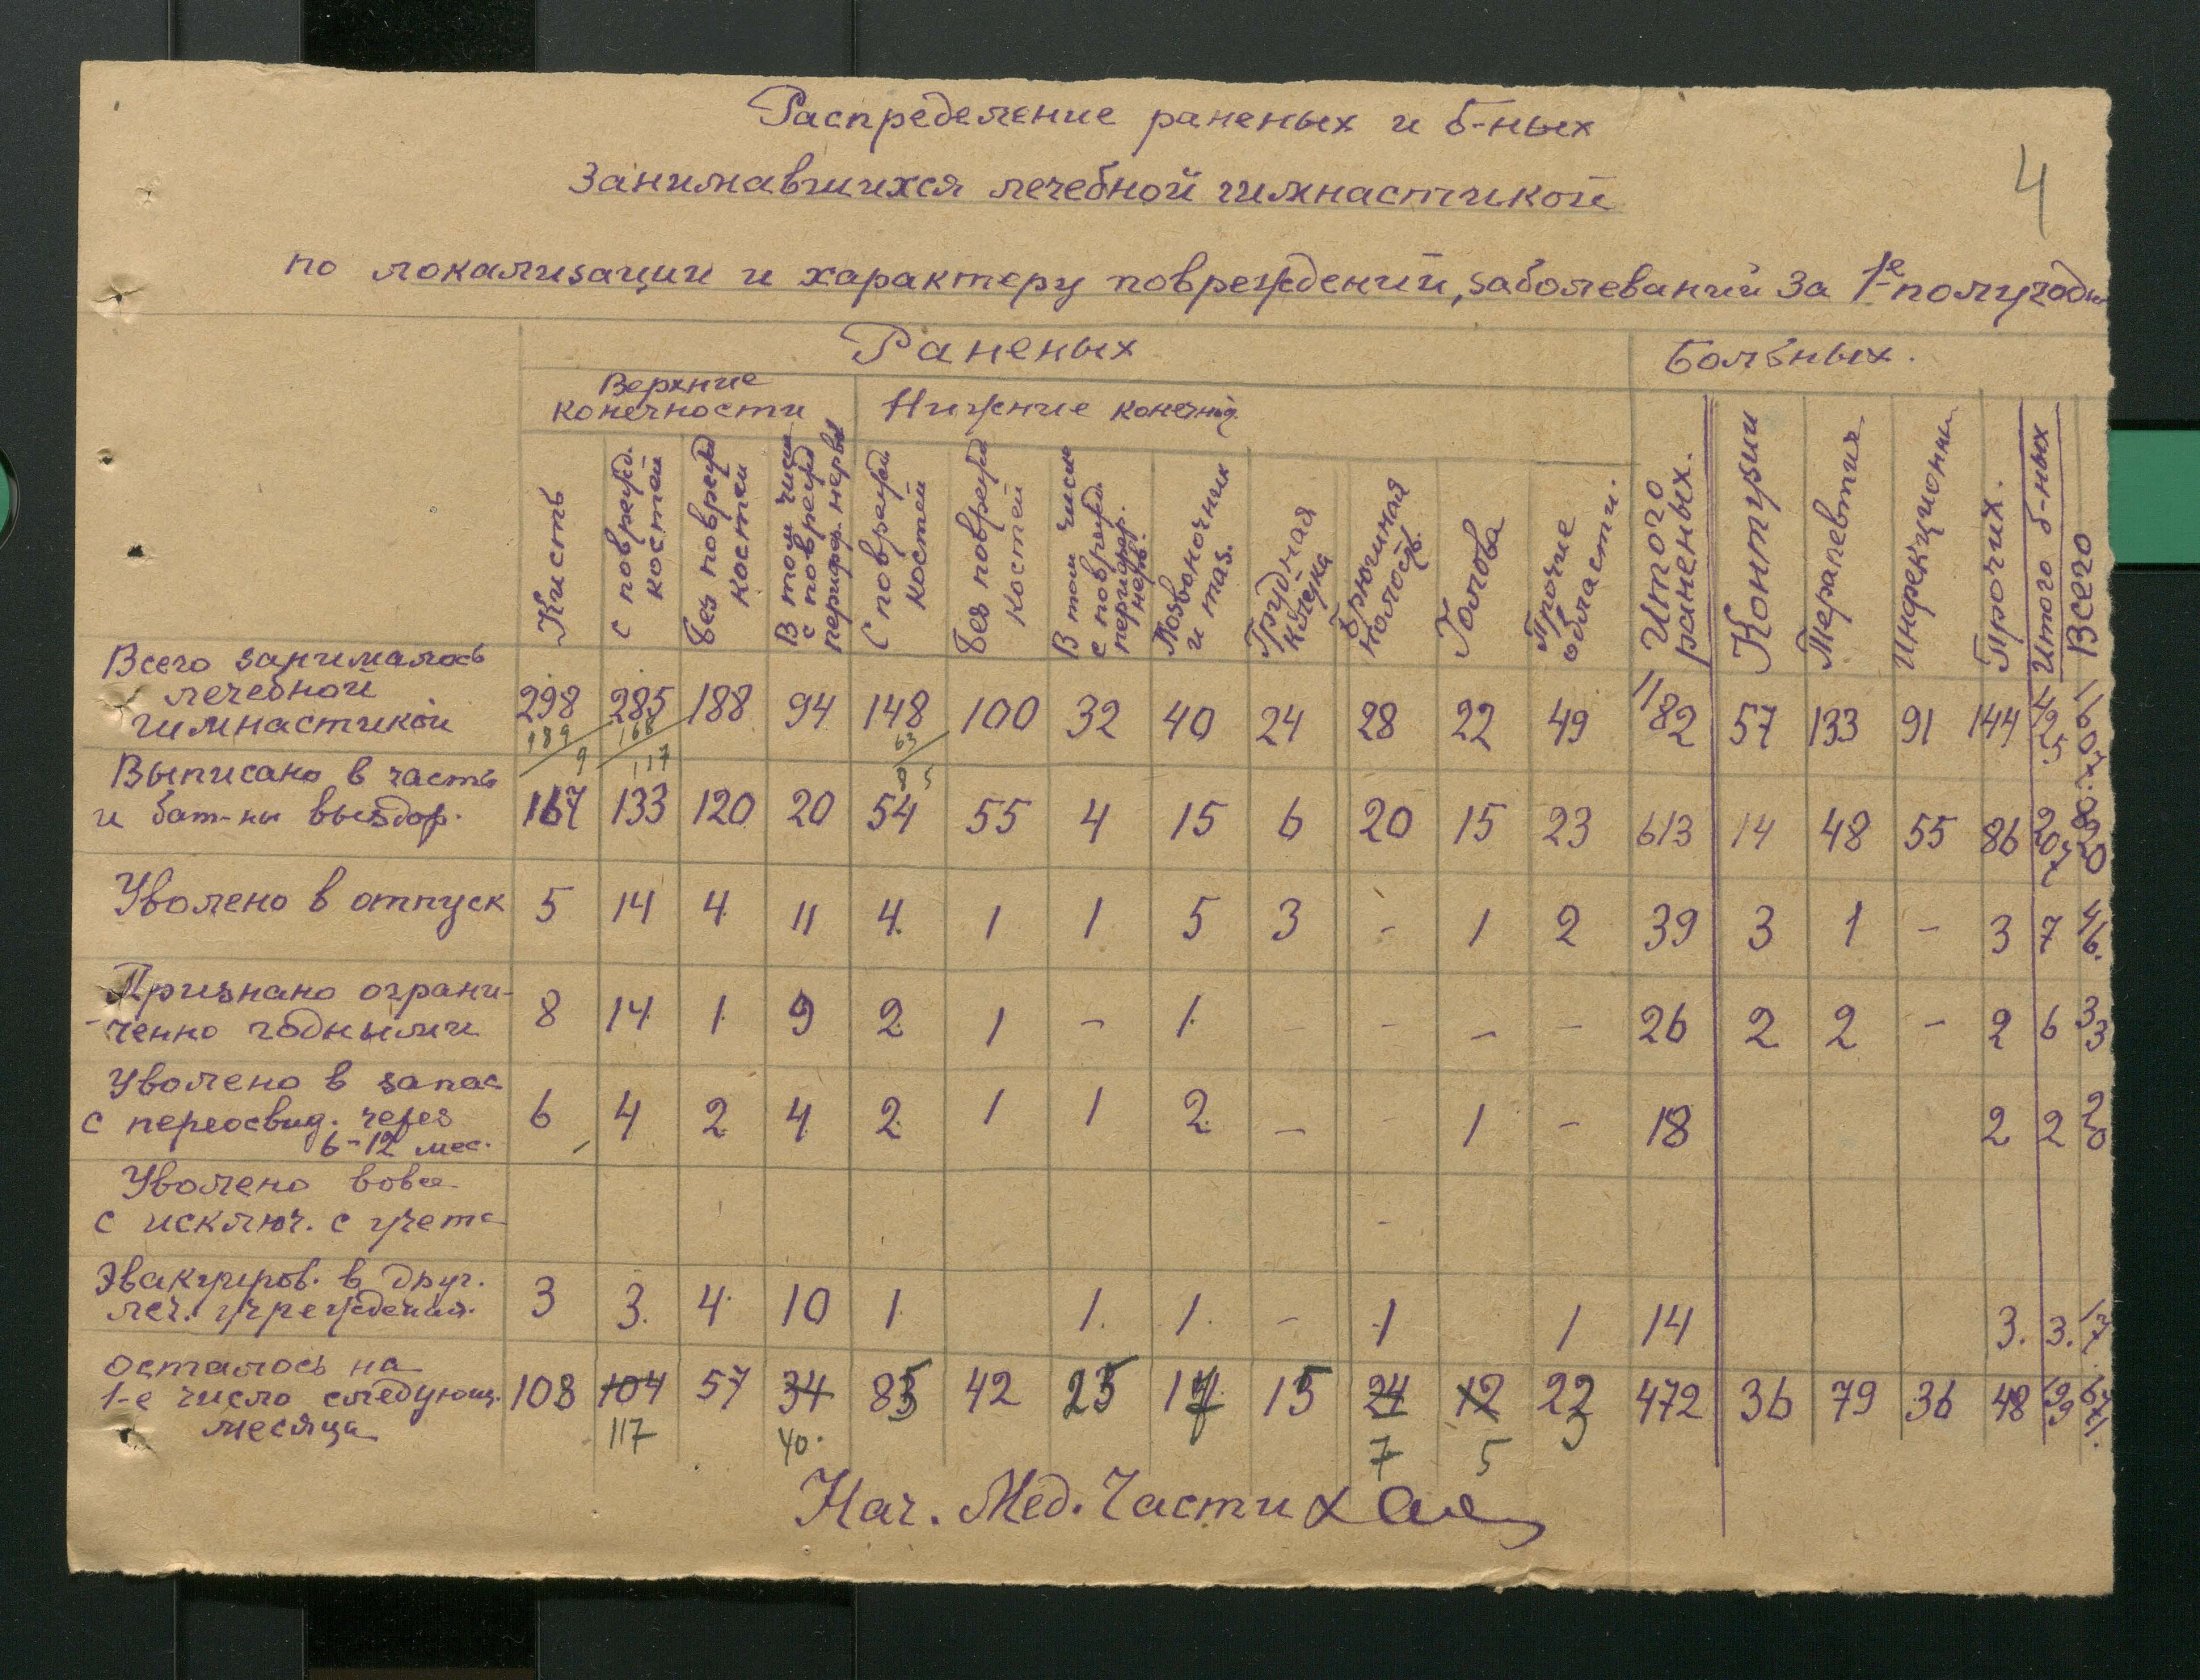 4
Распределение раненых и б-ных
занимавшихся лечебной гимнастикой
по локализации и характеру повреждений, заболеваний за 1е полугоди
Раненых
Больных.
Верхние конечности
Нижние конечн.
Кисть
с поврежд. костей
без поврежд костей
в том числе с поврежд перифер. нервы
С поврежд. костей
без поврежд костей
В том числе с поврежд. перифер. нерв.
Позвоночник и таз.
Грудная клетка
Брюшная полость.
Голова
Прочие области.
Итого раненых.
Контузии
Терапевтич
Инфекционн
Прочих.
Итого б-ных
Всего
Всего занималось лечебной гимнастикой 298 285 188 94 148 100 32 40 24 28 22 49 1182 57 133 91 144 425 1607
189 168 63
9 117
Выписано в часть и бат-ны выздор. 167 133 120 20 54 55 4 15 6 20 15 23 613 14 48 55 86 207 820
Уволено в отпуск 5 14 4 11 4 1 1 5 3 - 1 2 39 3 1 - 3 7 46.
Признано ограни-
-ченно годными 8 14 1 9 2 1 - 1 - - - - 26 2 2 - 2 6 33
Уволено в запас
с переосвид. через
6-12 мес. 6 4 2 4 2 1 1 2 - - 1 - 18 2 2 20
Уволено вовсе
с исключ. с учета
Эвакуиров. в друг.
леч. учреждения. 3 3. 4 10 1 1. 1. - 1 1 14 3. 3. 17
Осталось на
1-е число следующ.
месяца 108 104 57 34 85 42 25 15 24 12 22 472 36 79 36 48 199 671.
117 40. 7 5
Нач. Мед. Части